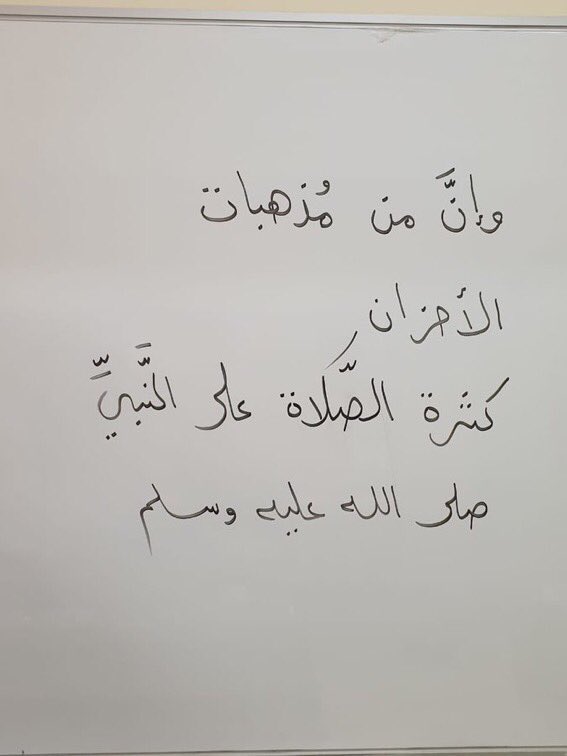 وإنَّ من مُذهبات
الأحزان
كثرة الصَّلاة على النَّبيِّ
صلى الله عليه وسلم